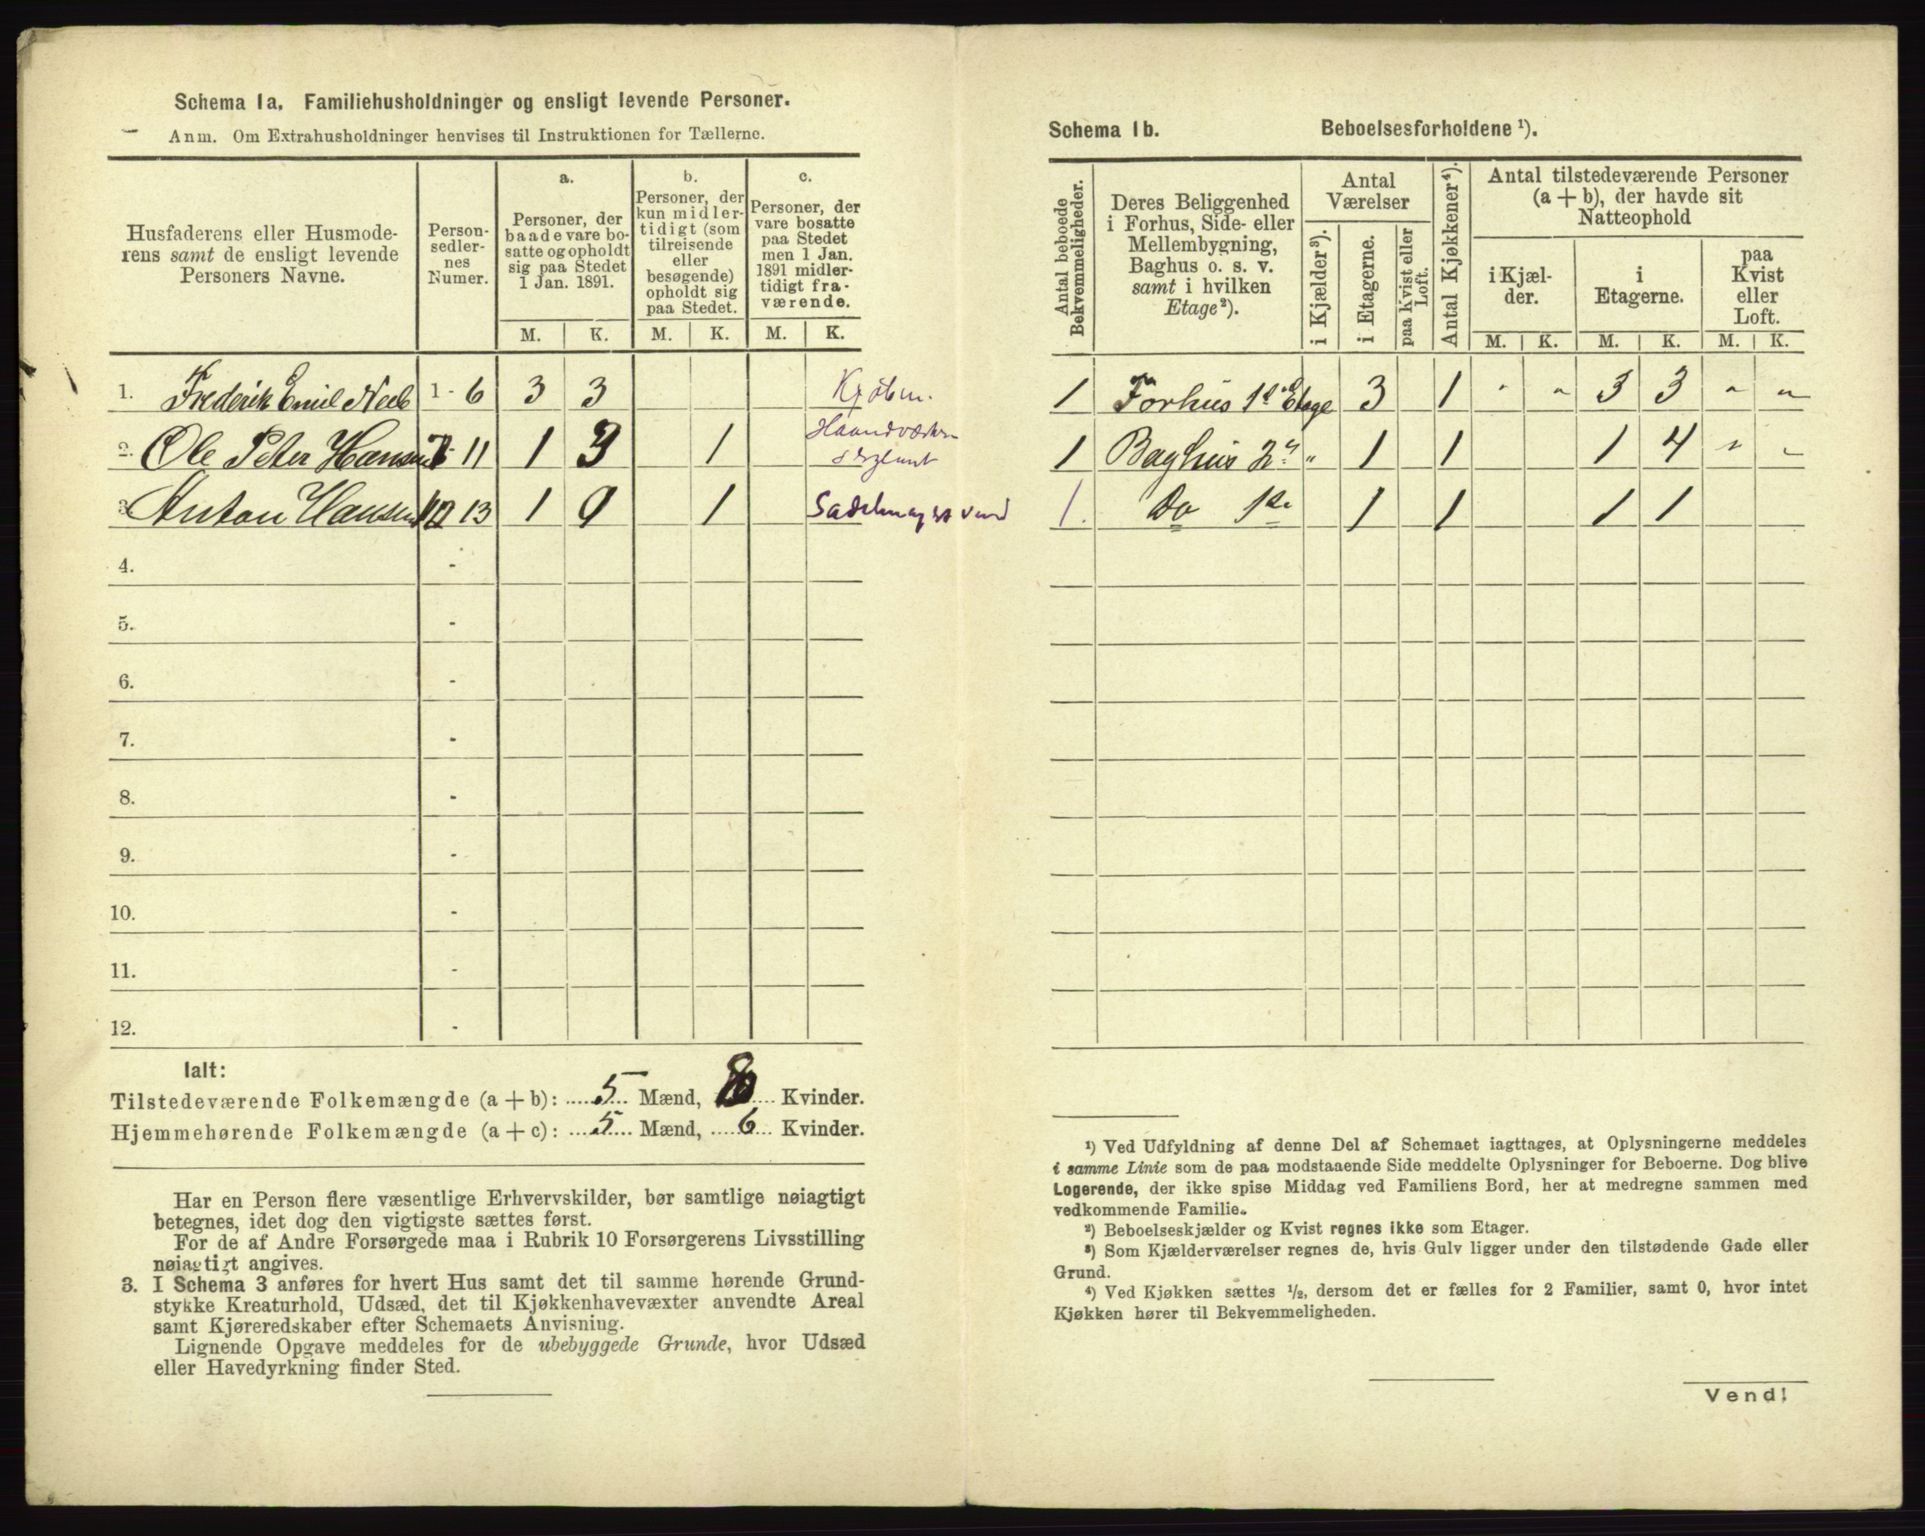 Schema 1a. Familiehusholdninger og ensligt levende Personer.
Anm. Om Extrahusholdninger henvises til Instruktionen for Tællerne.
Husfaderens eller Husmode-
rens samt de ensligt levende
Personers Navne.
Person-
sedler-
nes
Numer.
a.
Personer, der
baade vare bo-
satte og opholdt
sig paa Stedet
1 Jan. 1891.
b.
Personer, der
kun midler-
tidigt (som
tilreisende
eller
besøgende)
opholdt sig
paa Stedet.
c.
Personer, der
vare bosatte
paa Stedet
men 1 Jan.
1891 midler-
tidigt fra-
værende.
M. K. M. K. M. K.
1. Frederik Emil 1 - 6 3 3 Kjøbm.
2. Ole Peter Hansen 11 1 3 1
3. Anton Hansen 13 1 0 1
4. -
5. -
6. -
7. -
8. -
9. -
10. -
11. -
12. -
Ialt:
Tilstedeværende Folkemængde (a + b): 5 Mænd, 8 Kvinder.
Hjemmehørende Folkemængde (a + c): 5 Mænd, 6 Kvinder.
Har en Person flere væsentlige Erhvervskilder, bør samtlige nøiagtigt
betegnes, idet dog den vigtigste sættes først.
For de af Andre Forsørgede maa i Rubrik 10 Forsørgerens Livsstilling
nøiagtigt angives.
3. I Schema 3 anføres for hvert Hus samt det til samme hørende Grund-
stykke Kreaturhold, Udsæd, det til Kjøkkenhavevæxter anvendte Areal
samt Kjøreredskaber efter Schemaets Anvisning.
Lignende Opgave meddeles for de ubebyggede Grunde, hvor Udsæd
eller Havedyrkning finder Sted.
Schema 1b. Beboelsesforholdene ¹).
Antal beboede
Bekvemmeligheder.
Deres Beliggenhed
i Forhus, Side- eller
Mellembygning,
Baghus o. s. v.
samt i hvilken
Etage²).
Antal
Værelser
i Kjælder³).
i Etagerne.
paa Kvist eller
Loft.
Antal Kjøkkener⁴).
Antal tilstedeværende Personer
(a + b), der havde sit
Natteophold
i Kjæl-
der.
i
Etagerne.
paa
Kvist
eller
Loft.
M. K. M. K. M. K.
1 Forhus 1ste Etage 3 1 " " 3 3 " "
1 Baghus 2den " 1 1 1 4 " "
1. Do 1ste 1 1 1 1
¹) Ved Udfyldning af denne Del af Schemaet iagttages, at Oplysningerne meddeles
i samme Linie som de paa modstaaende Side meddelte Oplysninger for Beboerne. Dog blive
Logerende, der ikke spise Middag ved Familiens Bord, her at medregne sammen med
vedkommende Familie.
²) Beboelseskjælder og Kvist regnes ikke som Etager.
³) Som Kjælderværelser regnes de, hvis Gulv ligger under den tilstødende Gade eller
Grund.
⁴) Ved Kjøkken sættes ½, dersom det er fælles for 2 Familier, samt 0, hvor intet
Kjøkken hører til Bekvemmeligheden.
Vend!